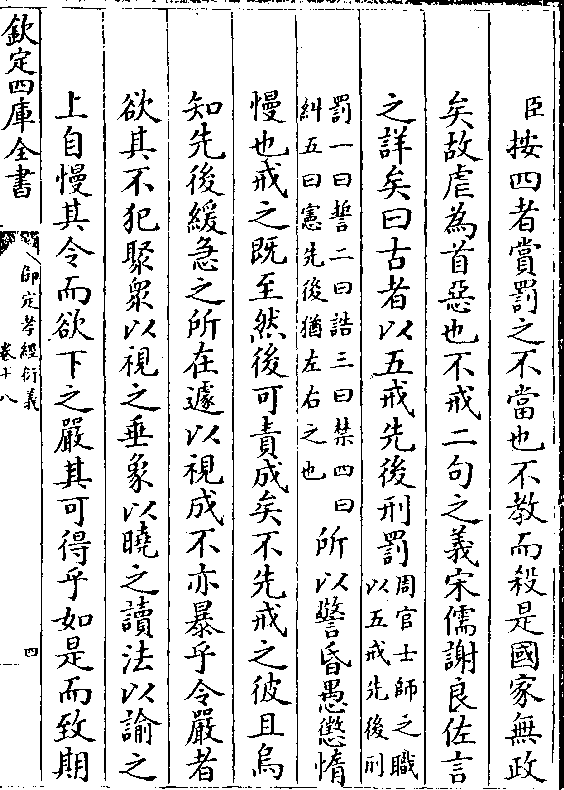 臣按四者賞罰之不當也不教而殺是國家無政
矣故虐為首惡也不戒二句之義宋儒謝良佐言
之詳矣曰古者以五戒先後刑罰周官士師之職
以五戒先後刑
罰一曰誓二曰誥三曰禁四曰
糾五曰憲先後猶左右之也所以警昏愚懲惰
慢也戒之既至然後可責成矣不先戒之彼且烏
知先後緩急之所在遽以視成不亦暴乎令嚴者
欲其不犯聚衆以視之垂象以曉之讀法以諭之
上自慢其令而欲下之嚴其可得乎如是而致期
欽定四庫全書
御定孝經衍義
卷十八
四